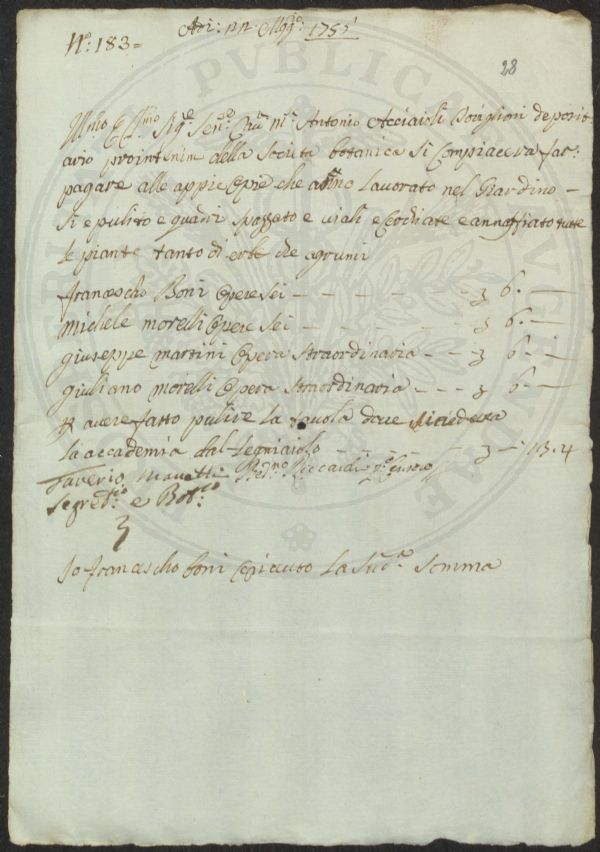 N.º: 183=
Adi: 22 Magg.º: 1755
28
Ill.mo E Cl.mo Sig.re Sen.re Cav. M.se Antonio Acciaioli Toriglioni deposit-
ario pro intérim della Società botanica Si Compiacera far-
pagare alle appie Opre che anno Lavorato nel Giardino -
Si e pulito e quadri Spazzato e viali e Cordicate e annaffiato tutte
le piante tanto di erbe che agrumi
francescho Boni Opere Sei - - - - - - 3 6. -
michele morelli Opere Sei - - - - - - 3 6. -
giuseppe martini Opera straordinaria - - - 3 6 -
giuliano morelli Opera straordinaria - - - 3 6 -
P avere fatto pulire La tavola dove
la accademia dal Legniaiolo - - - - 3 - 13.4
Saverio Manetti
Segret.rio e Bot.co
Io francescho boni O riceuto La Sud.a Somma